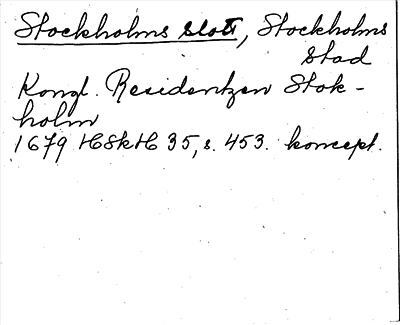 Stockholms slott, Stockholms
stad
Kongl. Residentzen Stok-
holm
1679 HSkH 35, s. 453. koncept.